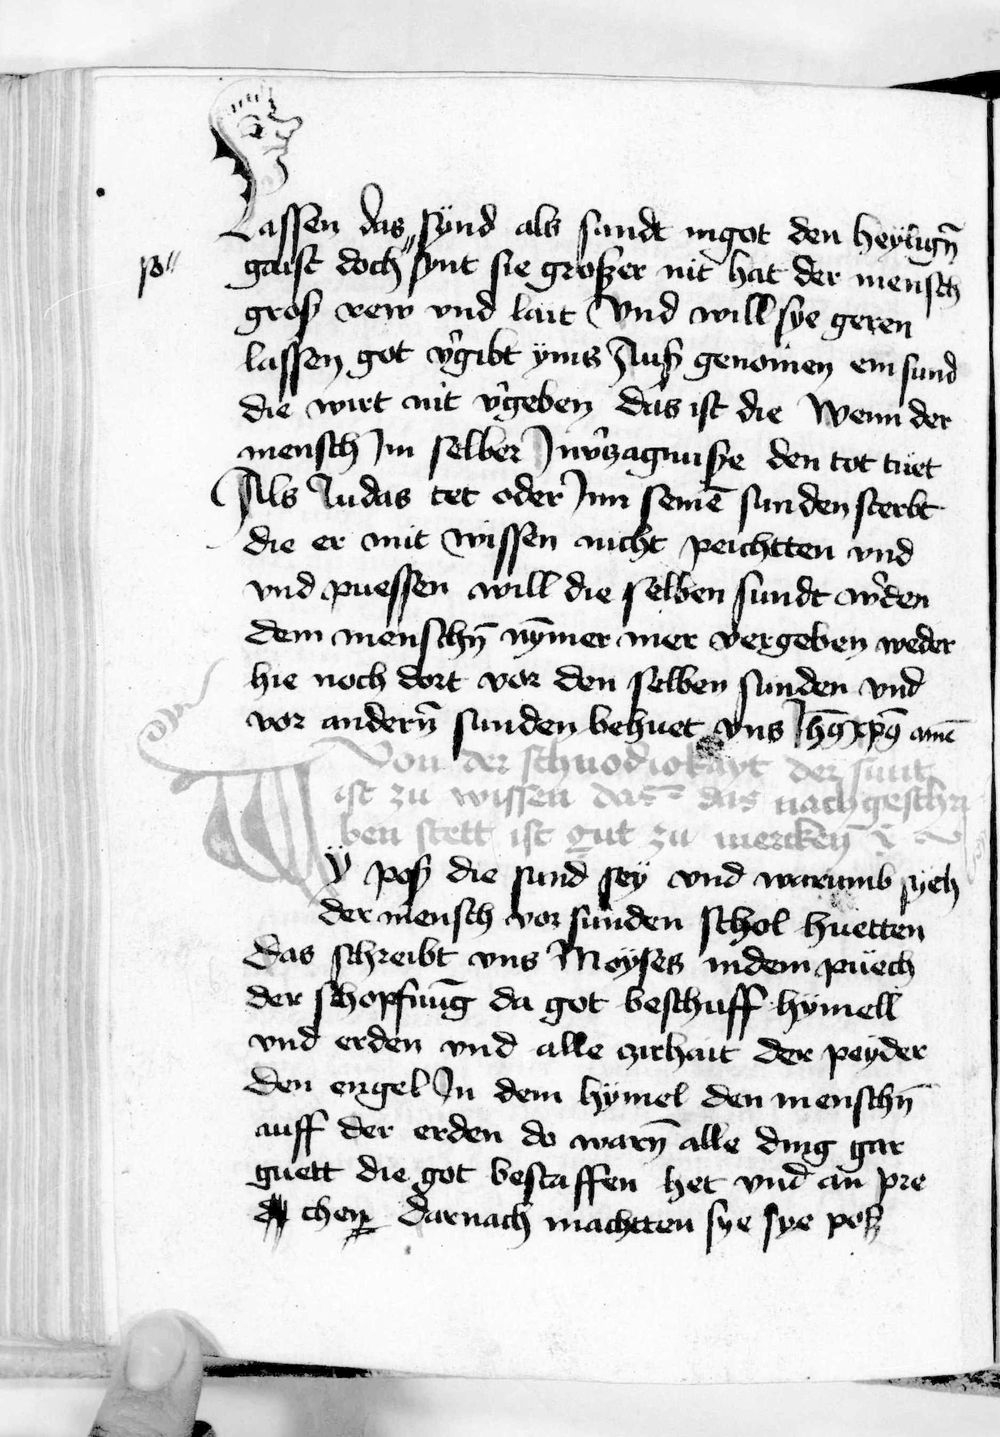 Lassen das sÿnd als sundt ingot den heÿlign̄
gaist doch synt sie großer nit hat der mensch
groß rew vnd lait Vnd will sye geren
lassen got v̉gibt yms Auß genomen ein sund
die wirt nit v̉geben das ist die Wenn der
mensch Im selber In v̉zagnusse den tot tuet
Als Judas tet oder Inn seinē sunden sterbt
die er mit wissen nicht peichtten vnd
vnd puessen will die selben sundt w̉den
dem menschn̄ nȳmer mer vergeben weder
hie noch dort vor den selben sunden vnd
vor andern̄ sunden behuet vns Jhꝰ xpꝰ amē
Von der schnodickayt der sunt
ist zu wissen das das nachgeschri
ben stett ist gut zu mercken̄
Wÿ poß die sund seÿ vnd warumb sych
der mensch vor sunden schol huetten
Das schreibt vns Moÿses indem puech
der schopfnūg da got beschuff hÿmell
vnd erden vnd alle zirhait der peÿder
den engel In dem hÿmel den menschn̄
auff der erden do warn̄ alle ding gar
guett die got bestaffen het vnd an pre
chen darnach machtten sye sye poß